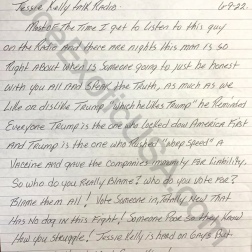 Jessie Kelly talk Radio. 6-9-22.
Most of The Time I get to Listen to this guy
on the Radio and there are nights this man is so
Right About when is Someone going to just be honest
with you All And Speak the Truth, as much as we
Like or dislike Trump, "which he likes Trump" he Reminded
Everyone Trump is the one who locked down America First
And Trump is the one who Rushed "warp speed" A
Vaccine and gave the companies immunity for Liability.
So who do you Really Blame? who do you vote for?
Blame them All! Vote Someone in, Totally New That
Has No dog in this Fight! Someone Poor So they Know
How you struggle! Jessie Kelly is head on Guys But